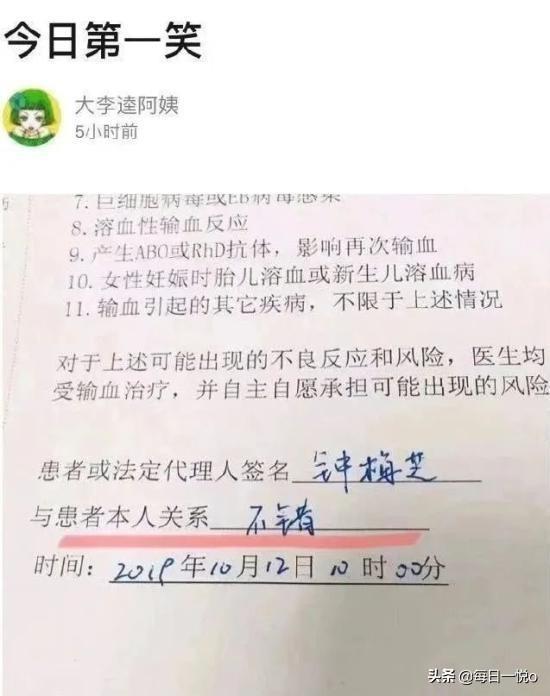 今日第一笑
大李逵阿姨
5小时前
7. 巨细胞病毒或EB病毒感染
8. 溶血性输血反应
9. 产生ABO或RhD抗体，影响再次输血
10. 女性妊娠时胎儿溶血或新生儿溶血病
11. 输血引起的其它疾病，不限于上述情况
对于上述可能出现的不良反应和风险，医生均
受输血治疗，并自主自愿承担可能出现的风险
患者或法定代理人签名 钟梅芝
与患者本人关系 不错
时间：2019年10月12日10时00分
头条 @每日一悦o